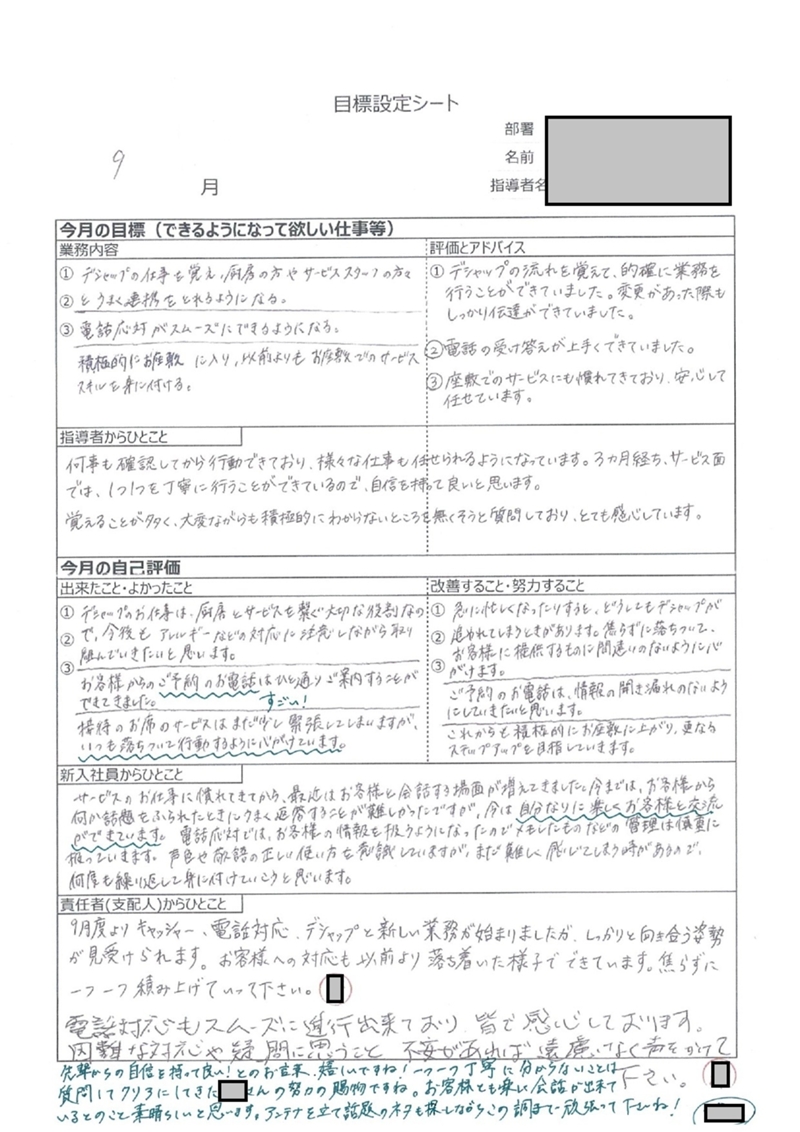 目標設定シート
部署
名前
指導者名
9
月
今月の目標（できるようになって欲しい仕事等）
業務内容
① デシャップの仕事を覚え、厨房の方やサービススタッフの方々
② とうまく連携をとれるようになる。
③ 電話応対がスムーズにできるようになる。
積極的にお座敷に入り、以前よりもお座敷でのサービス
スキルを身に付ける。
評価とアドバイス
① デシャップの流れを覚えて、的確に業務を
行うことができていました。変更があった際も
しっかり伝達ができていました。
② 電話の受け答えが上手くできていました。
③ 座敷でのサービスにも慣れてきており、安心して
任せています。
指導者からひとこと
何事も確認してから行動できており、様々な仕事も任せられるようになっています。3カ月経ち、サービス面
では、1つ1つを丁寧に行うことができているので、自信を持って良いと思います。
覚えることが多く、大変ながらも積極的にわからないところを無くそうと質問しており、とても感心しています。
今月の自己評価
出来たこと・よかったこと
① デシャップのお仕事は、厨房とサービスを繋ぐ大切な役割なの
② で、今後もアレルギーなどの対応に注意しながら取り
組んでいきたいと思います。
③
お客様からのご予約のお電話はひと通りご案内することが
できてきました。 すごい！
接待のお席のサービスはまだ少し緊張してしまいますが、
いつも落ちついて行動するように心がけています。
改善すること・努力すること
① 急に忙しくなったりすると、どうしてもデシャップが
② 追われてしまうときがあります。焦らずに落ちついて、
お客様に提供するものに間違いのないように心
③ がけます。
ご予約のお電話は、情報の聞き漏れのないよう
にしていきたいと思います。
これからも積極的にお座敷に上がり、更なる
ステップアップを目指していきます。
新入社員からひとこと
サービスのお仕事に慣れてきてから、最近はお客様と会話する場面が増えてきました。今までは、お客様から
何か話題をふられたときにうまく返答することが難しかったですが、今は自分なりに楽しくお客様と交流
ができています。電話応対では、お客様の情報を扱うようになったのでメモしたものなどの管理は慎重に
扱っていきます。声色や敬語の正しい使い方を意識していますが、まだ難しく感じてしまう時があるので、
何度も繰り返して身に付けていこうと思います。
責任者(支配人)からひとこと
9月度よりキャッシャー、電話対応、デシャップと新しい業務が始まりましたが、しっかりと向き合う姿勢
が見受けられます。お客様への対応も以前より落ち着いた様子でできています。焦らずに
一つ一つ積み上げていって下さい。
電話対応もスムーズに進行出来ており、皆で感心しております。
困難な対応や疑問に思うこと 不安があれば遠慮なく声をかけて
下さい。
先輩からの自信を持って良い！とのお言葉、嬉しいですね！一つ一つ丁寧に分からないことは
質問してクリアにしてきた さんの努力の賜物ですね。お客様とも楽しい会話が出来て
いるとのこと素晴らしいと思います。アンテナを立て話題のネタも探しながらこの調子で頑張って下さいね！